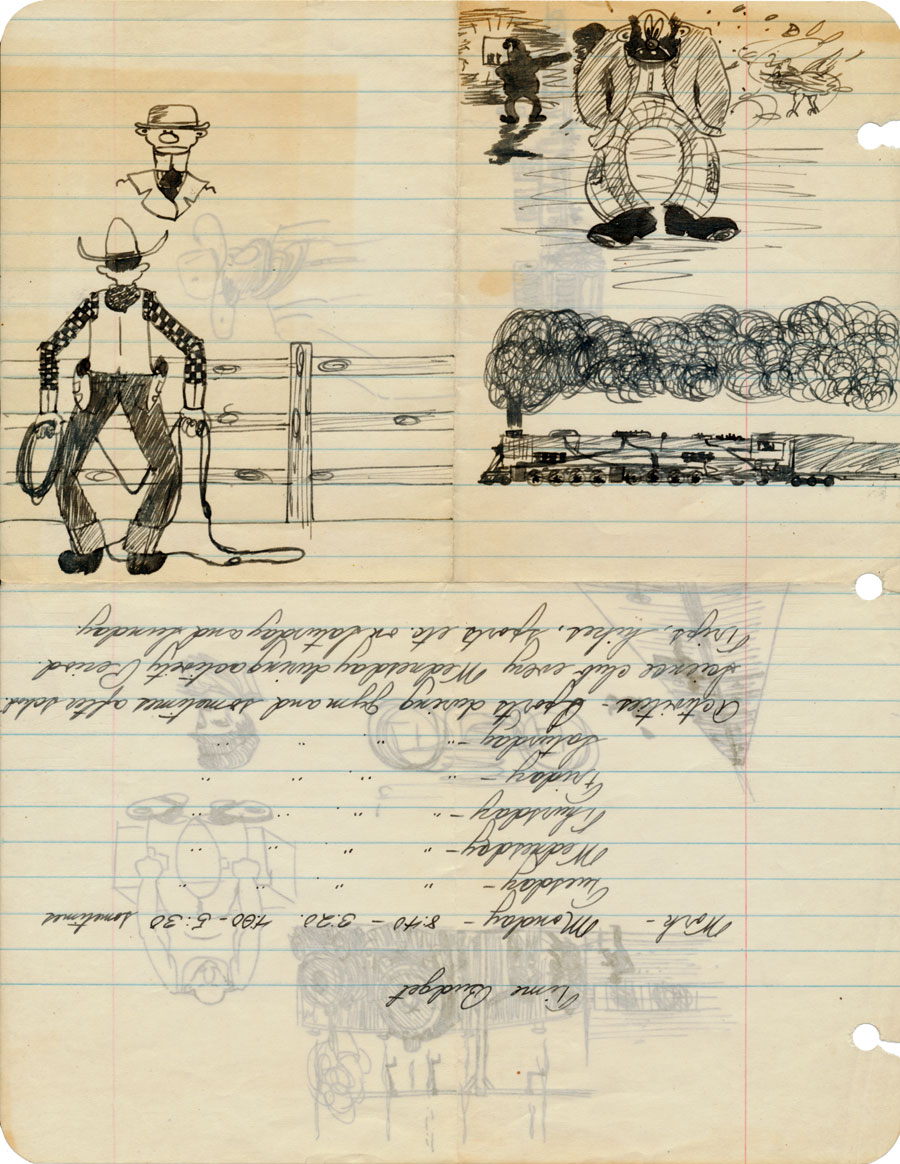 Time Budget
Work - Monday - 8:40 - 3:20. 4:00 - 5:30 sometimes
Tuesday - " " " "
Wednesday - " " " "
Thursday - " " " "
Friday - " " " "
Saturday - " " " "
Activities - Sports during gym and sometimes after school.
Science club every Wednesday during activity Period.
Trips, hikes, sports etc. on Saturday and Sunday.